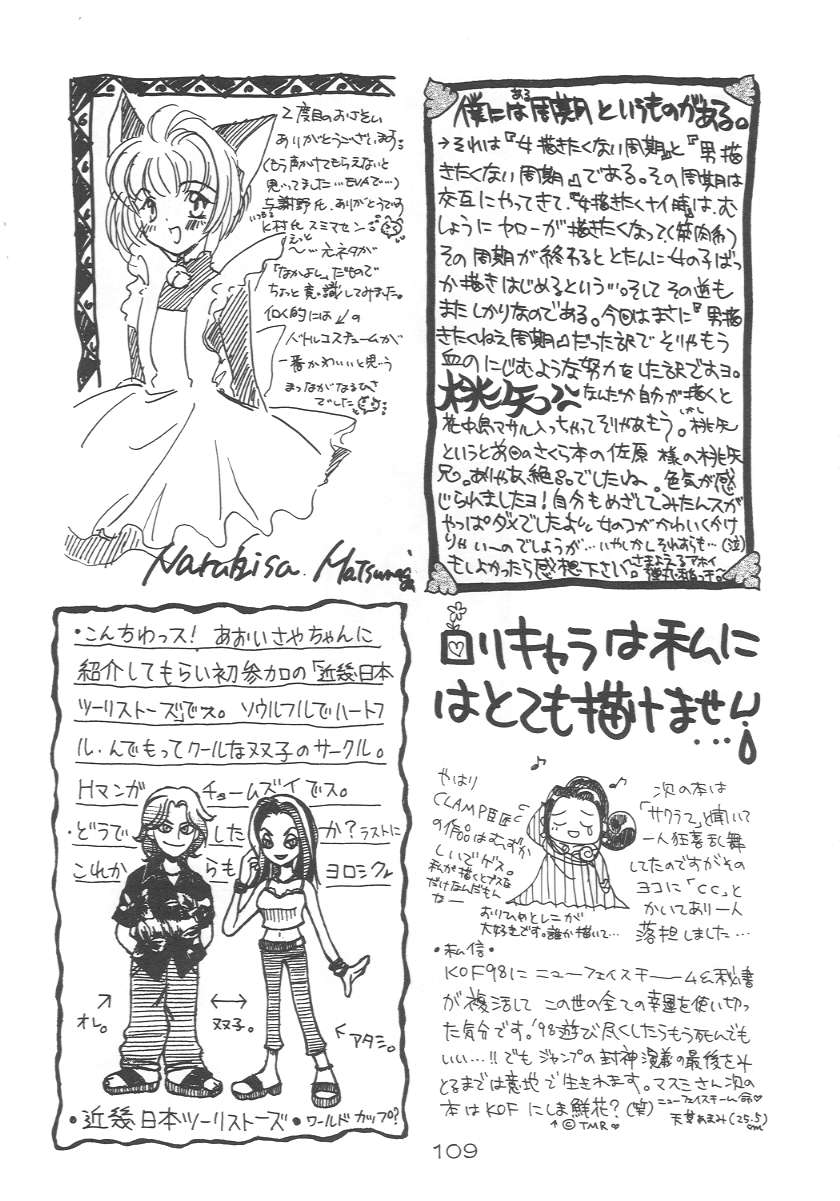 2度目のおさそい
ありがとうございます。
(もう声かけてもらえないと
思ってました…EVAで…)
与謝野氏、ありがとうです
K村氏スミマセン
えっと
〜…元ネタが
「なかよし」だもので
ちょっと意識してみました。
個人的には↙の
バトルコスチュームが
一番かわいいと思う
まつながなるひさ
でした
Naruhisa. Matsunaga
僕には周期というものがある。
ある
→それは『女描きたくない周期』と『男描
きたくない周期』である。その周期は
交互にやってきて、『女描きたくナイ時』は、む
しょうにヤローが描きたくなって、(筋肉希)
その周期が終わるととたんに女の子ばっ
か描きはじめるという…。そしてその逆も
またしかりなのである。今回はまさに『男描
きたくねえ周期』だった訳でそりゃもう
血のにじむような努力をした訳ですョ。
桃矢っ なんだか自分が描くと
花中島マサル入っちゃってそりゃあもう。しかし桃矢
というと前回のさくら本の佐原様の桃矢
兄。ありゃあ、絶品でしたね。色気が感
じられましたョ!自分もめざしてみたんスが
やっぱダメでしたよ。女のコがかわいくかけ
りゃい〜のでしょうが…いやしかしそれすらも…(泣)
もしよかったら感想下さい。さまよえるアホイ
・こんちわっス! あおいさやちゃんに
紹介してもらい初参加の「近畿日本
ツーリストーズ」でス。ソウルフルでハートフ
ル・んでもってクールな双子のサークル。
Hマンガ チョームズイでス。
・どうで した か?ラストに
これか らも ヨロシク
オレ。
↔
双子。
アタシ。
・近畿日本ツーリストーズ・ワールドカップ?
ロリキャラは私に
はとても描けません
…
やはり
CLAMP巨匠
の作品はむずか
しいでゲス。
私が描くとブスな
だけなんだもん
なー
おりひめとレニが
大好きです。誰か描いて…
次の本は
「サクラ2」と聞いて
一人狂喜乱舞
してたのですがその
ヨコに「CC」と
かいてあり一人
落胆しました…
・私信・
KOF98にニューフェイスチーム&秘書
が復活してこの世の全ての幸運を使い切っ
た気分です。'98遊び尽くしたらもう死んでも
いい…!!でもジャンプの封神演義の最後をみ
とるまでは意地で生きれます。マスミさん次の
本はKOFにしま鮮花?(笑)ニューフェイスチーム命♡
↑©TMR♡
天草あまみ(25.5)
109